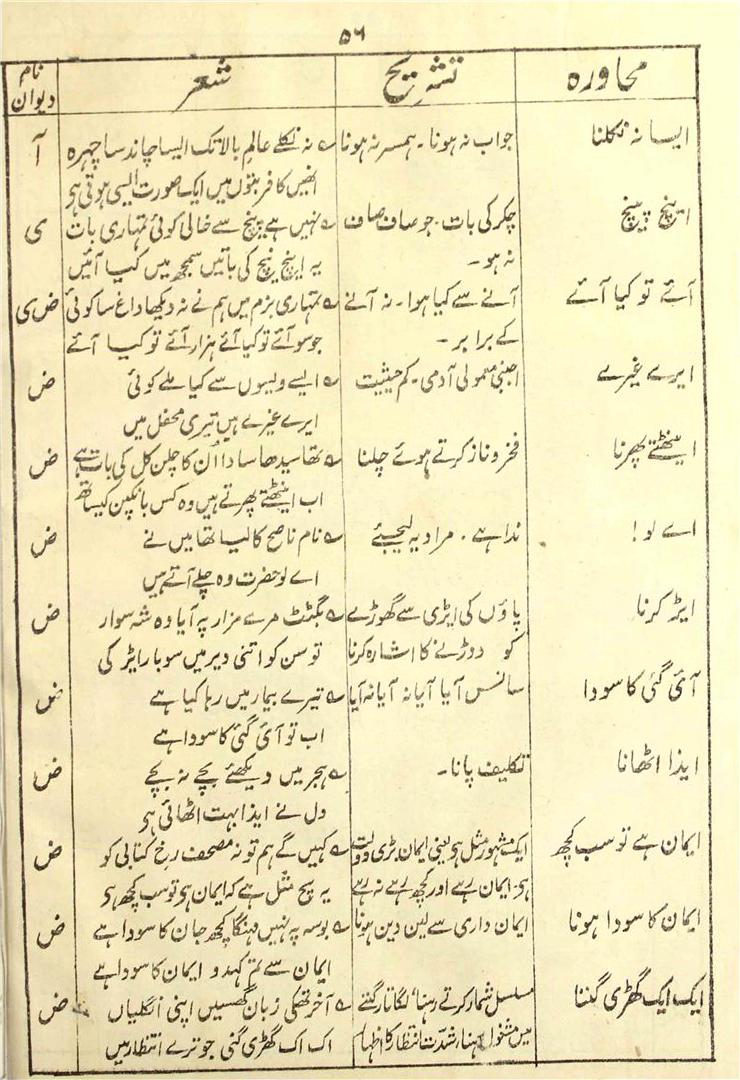 ۵۶
محاورہ	تشریح	شعر	نام دیوان
ایسا نہ نکلنا	جواب نہ ہونا۔ ہمسر نہ ہونا	؎ نہ نکلے عالمِ بالا تک ایسا چاند سا چہرہ	آ
انھیں کافر بتوں میں ایک صورت ایسی ہوتی ہو
اینچ پینچ	چکر کی بات۔ جو صاف صاف	؎ نہیں ہے پیچ سے خالی کوئی تمہاری بات	ی
نہ ہو۔	یہ اینچ پیچ کی باتیں سمجھ میں کیا آئیں
آئے تو کیا آئے	آنے سے کیا ہوا۔ نہ آنے	؎ تمہاری بزم میں ہم نے نہ دیکھا داغ سا کوئی	ض ی
کے برابر۔	جو سو آئے تو کیا آئے ہزار آئے تو کیا آئے
ایرے غیرے	اجنبی معمولی آدمی۔ کم حیثیت	؎ ایسے ویسوں سے کیا ملے کوئی	ض
ایرے غیرے ہیں تیری محفل میں
اینٹھتے پھرنا	فخر و ناز کرتے ہوئے چلنا	؎ تھا سیدھا سادا اُن کا چلن کل کی بات ہے	ض
اب اینٹھتے پھرتے ہیں وہ کس بانکپن کیساتھ
اے لو!	ندا ہے۔ مراد یہ لیجئے	؎ نام ناصح کا لیا تھا میں نے	ض
اے لو حضرت وہ چلے آتے ہیں
ایڑ کرنا	پاؤں کی ایڑی سے گھوڑے	؎ بگٹٹ مرے مزار پہ آیا وہ شہ سوار	ض
کو دوڑنے کا اشارہ کرنا	توسن کو اتنی دیر میں سو بار ایڑ کی
آئی گئی کا سودا	سانس آیا آیا نہ آیا نہ آیا	؎ تیرے بیمار میں رہا کیا ہے	ض
اب تو آئی گئی کا سودا ہے
ایذا اٹھانا	تکلیف پانا۔	؎ ہجر میں دیکھئے بچے نہ بچے	ض
دل نے ایذا بہت اٹھائی ہو
ایمان ہے تو سب کچھ	ایک مشہور مثل ہو یعنی ایمان بڑی دولت	؎ کہیں گے ہم تو نہ مصحف رخِ کتابی کو	ض
ہو۔ ایمان رہے اور کچھ رہے نہ رہے	یہ سچ مثل ہے کہ ایمان ہو تو سب کچھ ہو
ایمان کا سودا ہونا	ایمان داری سے لین دین ہونا	؎ بوسہ پہ نہیں مہنگا کچھ جان کا سودا ہے	ض
ایمان سے تم کہدو ایمان کا سودا ہے
ایک ایک گھڑی گننا	مسلسل شمار کرتے رہنا، لگاتار گننے	؎ آخر تھکی زبان گھسیں اپنی انگلیاں	ض
میں مشغول رہنا، شدّت انتظار کا اظہار	اک اک گھڑی گنی جو ترے انتظار میں